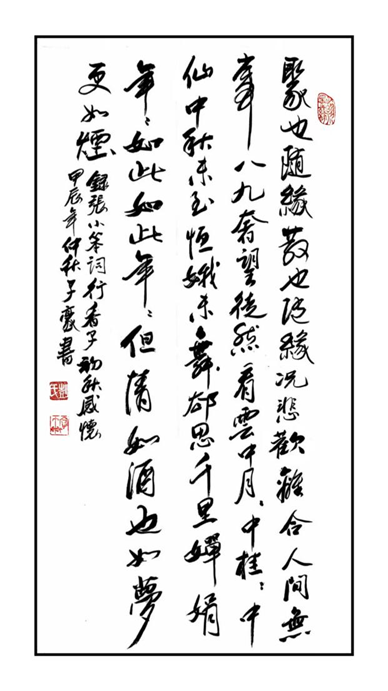 聚也随緣散也随緣況悲歡離合人間無
八九奢望徒然看雲中月、中桂、中
仙中秋未至恒娥未舞卻思千里嬋娟
年、如此如此年、但情如酒也如夢
更如煙
錄張小詞行香子初秋感懷
甲辰年仲秋子書